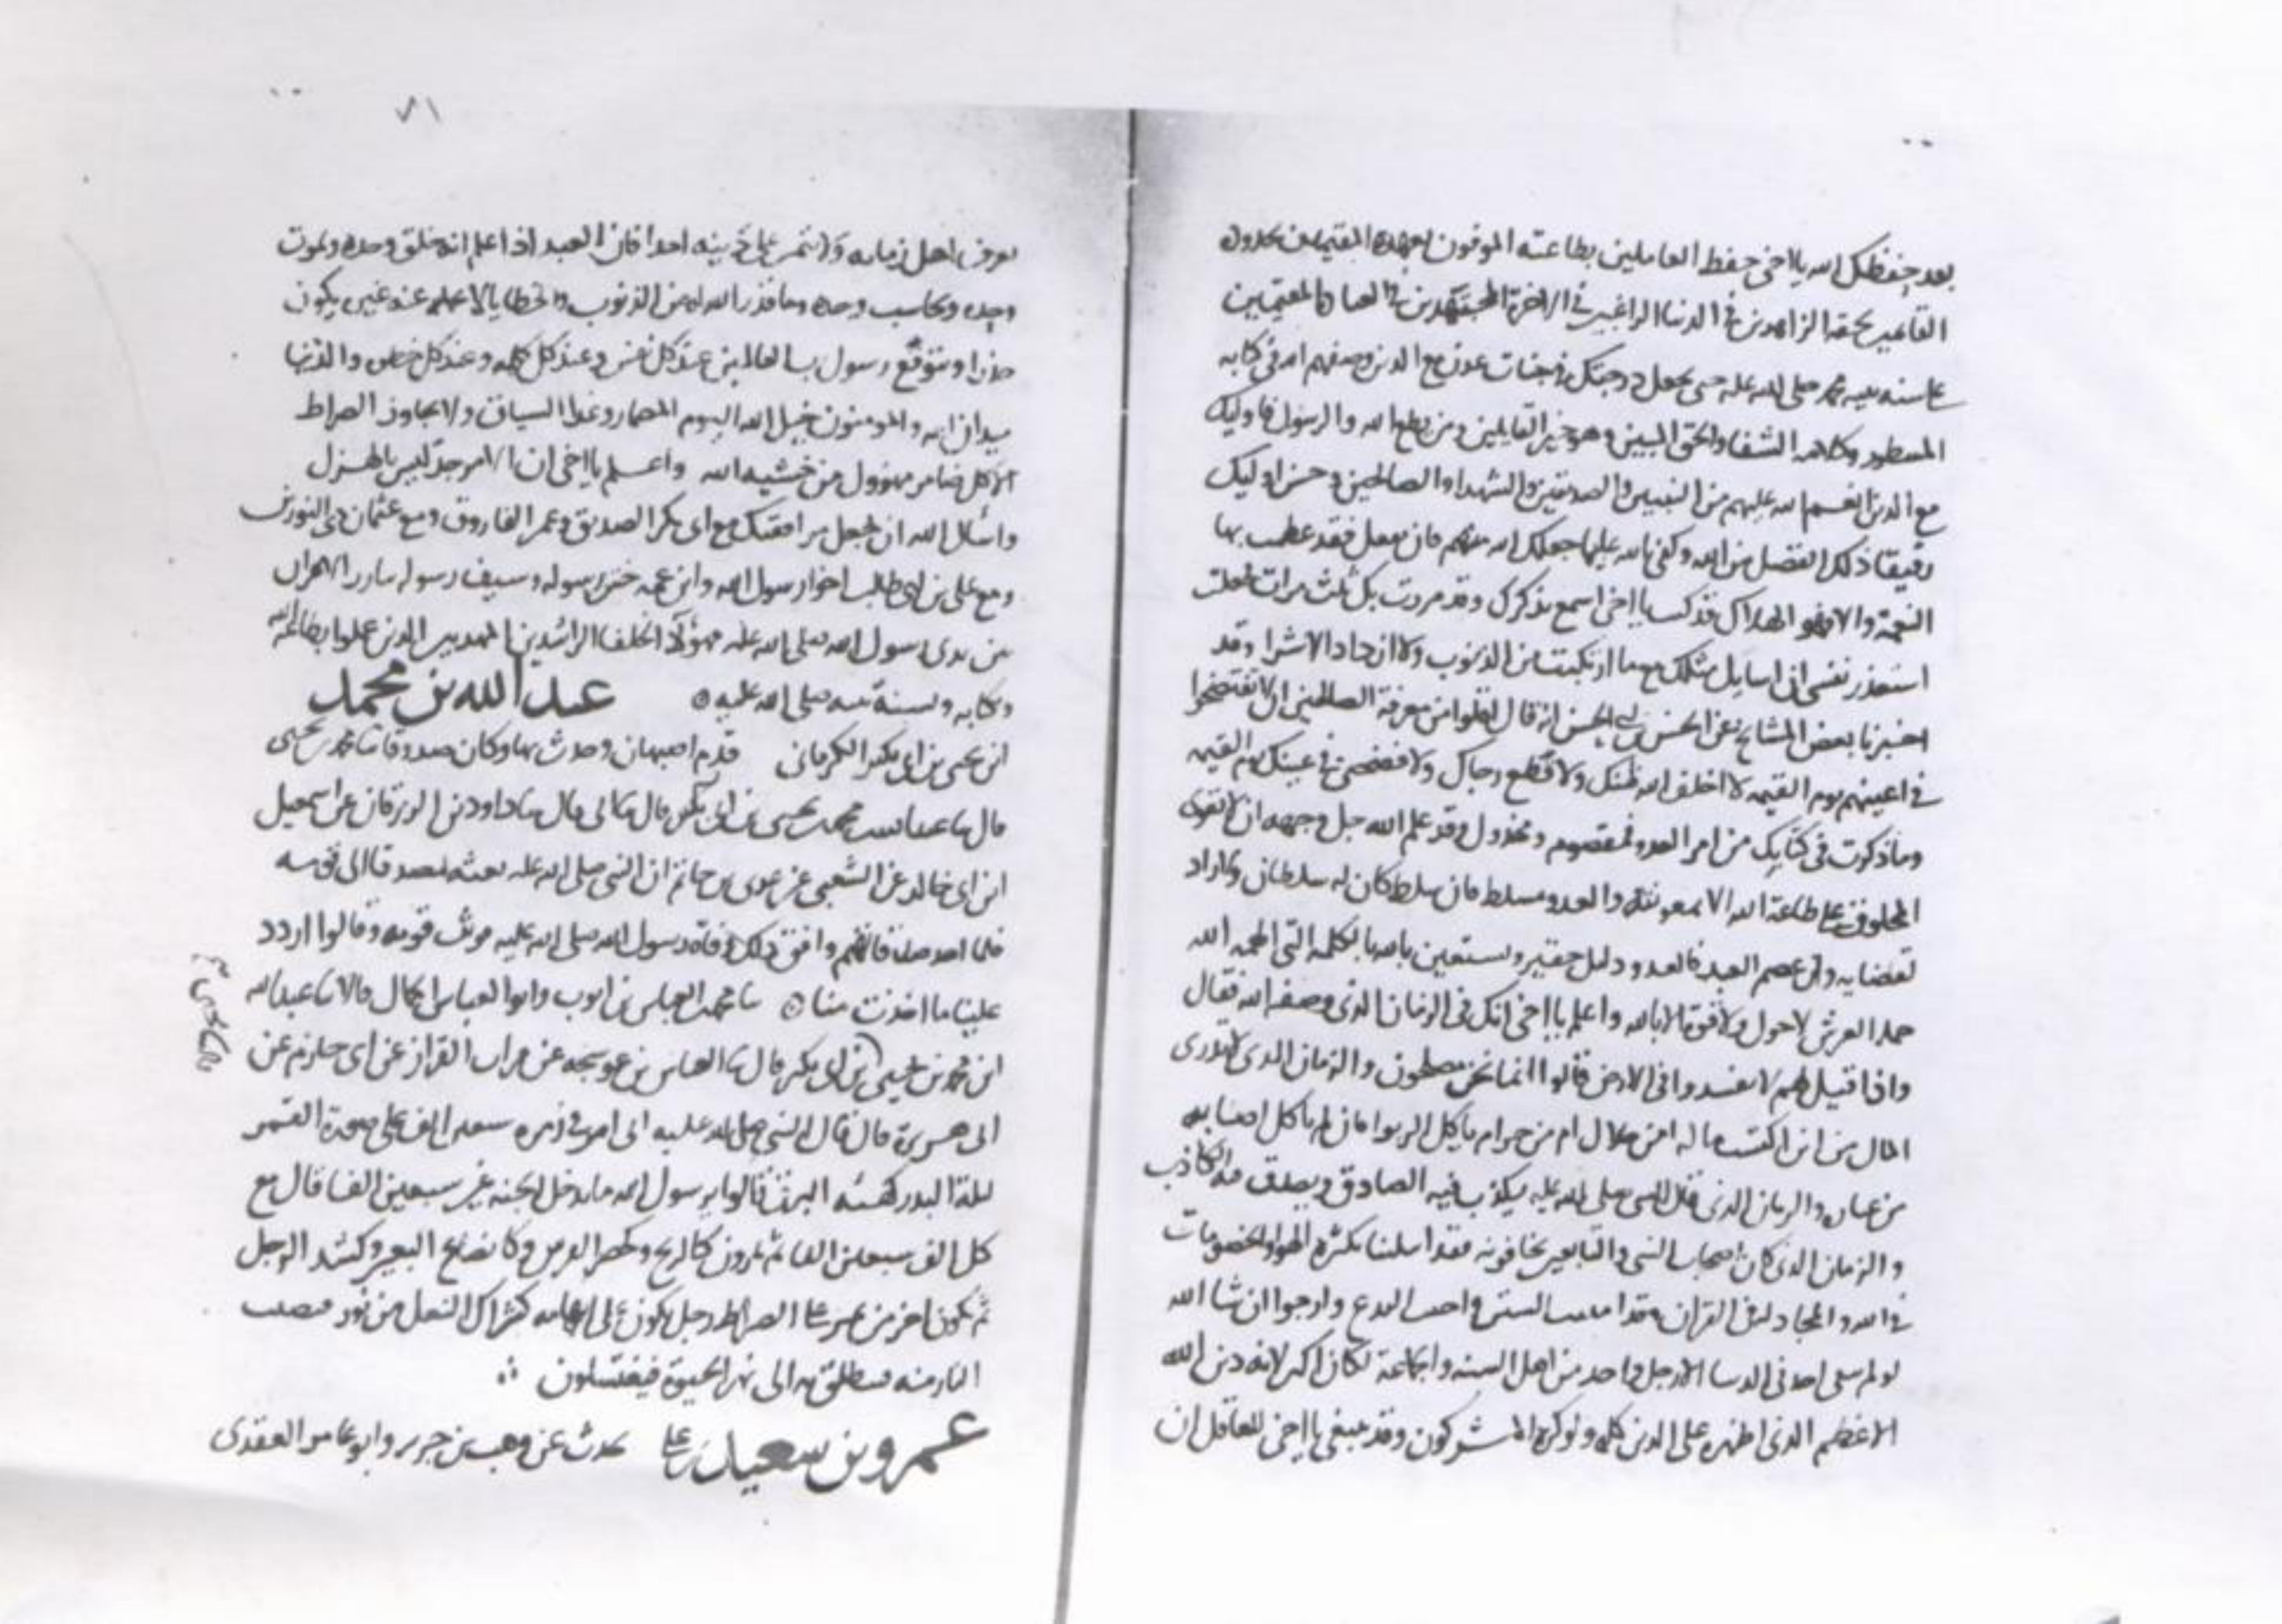 بعد حفظك الله يا اخي حفظ العاملين بطاعته الموفون بعهده المقيمين حدوده
القائمين بحقه الزاهدين في الدنيا الراغبين في الاخرة المجتهدين في العبادة المقيمين
على سنة نبيه محمد صلى الله عليه حتى يجعل درجتك في جنات عدن مع الذين وصفهم الله في كتابه
المسطور وكلامه الشفا والحق المبين وهو خير القايلين ومن يطع الله والرسول فاوليك
مع الذين انعم الله عليهم من النبيين والصديقين والشهدا والصالحين وحسن اوليك
رفيقا ذلك الفضل من الله وكفى بالله عليما جعلك الله منهم فان يفعل فقد عظمت بها
النعمة والا فهو الهلاك قد كنت يا اخي اسمع بذكرك وقد مررت بك ثلث مرات فجعلت
استعذر نفسي ان اسايل مثلك مع ما ارتكبت من الذنوب ولا ازداد الا شرا وقد
اخبرنا بعض المشايخ عن الحسن بن ابي الحسن انه قال اقلوا من معرفة الصالحين لان لا تفتضحوا
في اعينهم يوم القيمة لا اخلف الله ظنك ولا قطع رجاك ولا فضحني في عينك يوم القيمة
وما ذكرت في كتابك من امر العدو فمقصوم ومخذول وقد علم الله جل وجهه ان لا يقوى
المخلوقين على طاعة الله الا بمعونته والعدو مسلط فان سلط كان له سلطان ولا راد
لقضايه وان عصم العبد فالعدو ذليل حقير ونستعين بالله بالكلمة التي الهمه الله
حملة العرش لا حول ولا قوة الا بالله واعلم يا اخي انك في الزمان الذي وصفه الله فقال
واذا قيل لهم لا تفسدوا في الارض قالوا انما نحن مصلحون والزمان الذي لا يدرى
المال من اين اكتسب ماله امن حلال ام من حرام ياكل الربوا فان لم ياكل اصابه
من غباره والزمان الذي قال النبي صلى الله عليه يكذب فيه الصادق ويصدق فيه الكاذب
والزمان الذي كان اصحاب النبي والتابعين يخافونه فقد ابتلينا بكثرة الهوا والخصومات
في الله والمجادلة في القران وقد اميتت السنن واحييت البدع وارجوا ان شا الله
لو لم يبقى احد في الدنيا الا رجل واحد من اهل السنة والجماعة لكان اكبر لانه دين الله
الاعظم الذي اظهره على الدين كله ولو كره المشركون وقد ينبغي يا اخي للعاقل ان
٧١
يعرف اهل زمانه ولا يتمن على دينه احدا فان العبد اذا علم انه خلق وحده ويموت
وحده ويحاسب وحده وما قدر الله له من الذنوب والخطايا لا يحملها عنه غيره يكون
حذرا ويتوقع رسول رب العالمين عند كل نفس وعند كل كلمة وعند كل خطى والدنيا
ميدان الله والمومنون خيل الله اليوم المضمار وغدا السباق ولا يجاوز الصراط
الا كل ضامر مهزول من خشية الله واعلم يا اخي ان الامر جد ليس بالهزل
واسال الله ان يجعل مرافقتك مع ابي بكر الصديق وعمر الفاروق ومع عثمان ذي النورين
ومع علي بن ابي طالب اخوا رسول الله وابن عمه ختن رسوله وسيف رسوله
بين يدي رسول الله صلى الله عليه فهؤلا الخلفا الراشدين المهديين الذين عملوا بطاعة الله
وكتابه وسنة نبيه صلى الله عليه ٥ عبد الله بن محمد
ابن يحيى بن ابي بكر الكرماني قدم اصبهان وحدث بها وكان صدوقا ثنا محمد بن يحيى
قال ثنا عبد الله بن محمد بن يحيى بن ابي بكير قال ثنا ابي قال ثنا داود بن الزبرقان عن اسمعيل
ابن ابي خالد عن الشعبي عن عدي بن حاتم ان النبي صلى الله عليه بعثه مصدقا الى قومه
فلما اخذ صدقاتهم وافق ذلك وفاة رسول الله صلى الله عليه فوثب قومه وقالوا اردد
علينا ما اخذت منا ٥ ثنا محمد بن العباس بن ايوب وابو العباس الجمال قالا ثنا عبد الله
ابن محمد بن يحيى بن ابي بكير قال ثنا العباس بن عوسجة عن فرات القزاز عن ابي حازم عن
ابي هريرة قال قال النبي صلى الله عليه ان امتي في زمرة سبعين الف على صورة القمر
ليلة البدر كهيئة البرق قالوا يرسول الله ما يدخل الجنة غير سبعين الفا قال مع
كل الف سبعين الفا ثم يمرون كالريح وكحضر الفرس وكايضاع البعير وكشد الرجل
ثم يكون اخر من يمر على الصراط رجل يكون على ابهامه كشراك النعل من نور فتصيب
النار منه فينطلق به الى نهر الحيوة فيغتسلون ∴
عمرو بن سعيد يحدث عن وهب بن جرير وابو عامر العقدي